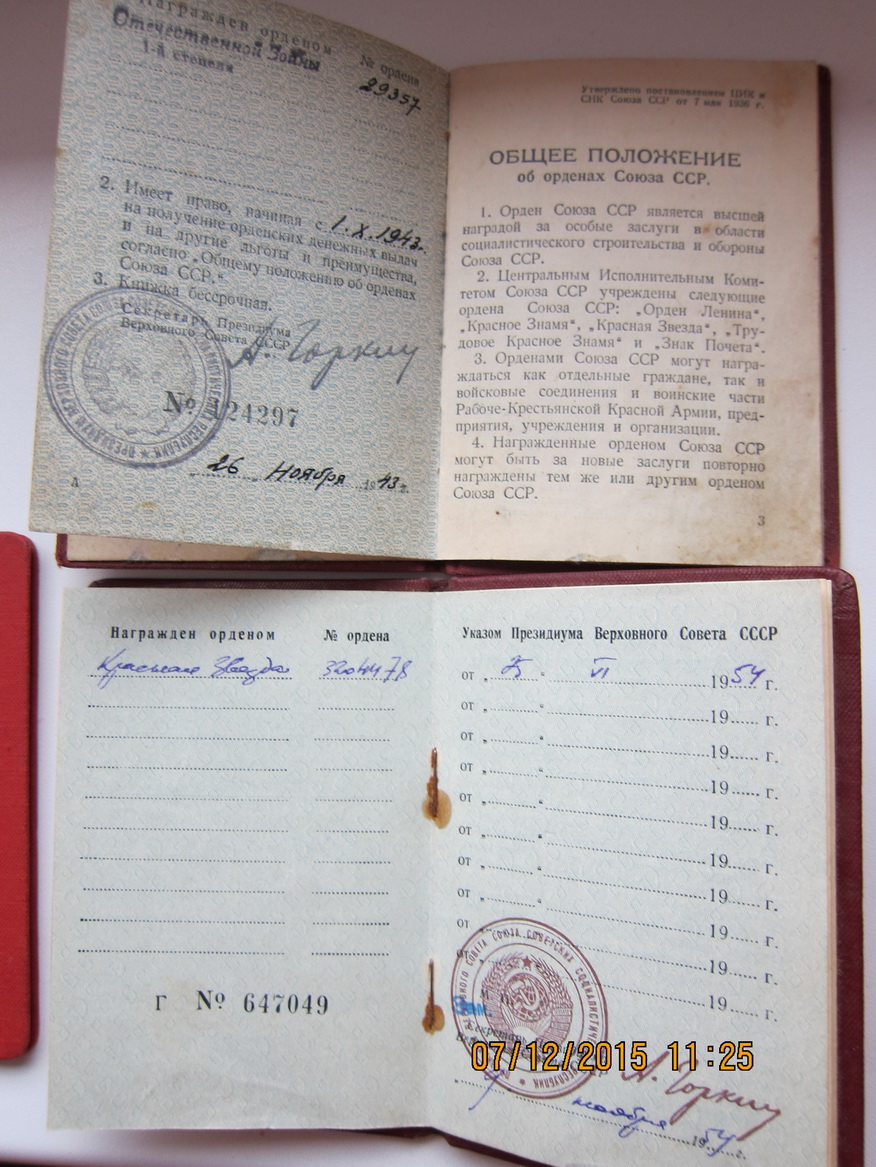 Награжден орденом
Отечественной Войны
1-й степени
№ ордена
29357
2. Имеет право, начиная с 1.X.1943г.
на получение орденских денежных выдач
и на другие льготы и преимущества,
согласно „Общему положению об орденах
Союза ССР.“
3. Книжка бессрочная.
Секретарь Президиума
Верховного Совета СССР
А. Горкин
№ 24297
„26„ Ноября 1943 г.
Утверждено постановлением ЦИК и
СНК Союза ССР от 7 мая 1936 г.
ОБЩЕЕ ПОЛОЖЕНИЕ
об орденах Союза ССР.
1. Орден Союза ССР является высшей
наградой за особые заслуги в области
социалистического строительства и обороны
Союза ССР.
2. Центральным Исполнительным Коми-
тетом Союза ССР учреждены следующие
ордена Союза ССР: „Орден Ленина“,
„Красное Знамя“, „Красная Звезда“, „Тру-
довое Красное Знамя“ и „Знак Почета“.
3. Орденами Союза ССР могут награ-
ждаться как отдельные граждане, так и
войсковые соединения и воинские части
Рабоче-Крестьянской Красной Армии, пред-
приятия, учреждения и организации.
4. Награжденные орденом Союза ССР
могут быть за новые заслуги повторно
награждены тем же или другим орденом
Союза ССР.
3
Награжден орденом № ордена
Красная Звезда
Г № 647049
Указом Президиума Верховного Совета СССР
от „ “ VI 1954 г.
от „ “ 19 г.
от „ “ 19 г.
от „ “ 19 г.
от „ “ 19 г.
от „ “ 19 г.
от „ “ 19 г.
от „ “ 19 г.
от 19 г.
от 19 г.
Зам.
Секретарь
А. Горкин
ноября 1954 г.
07/12/2015 11:25